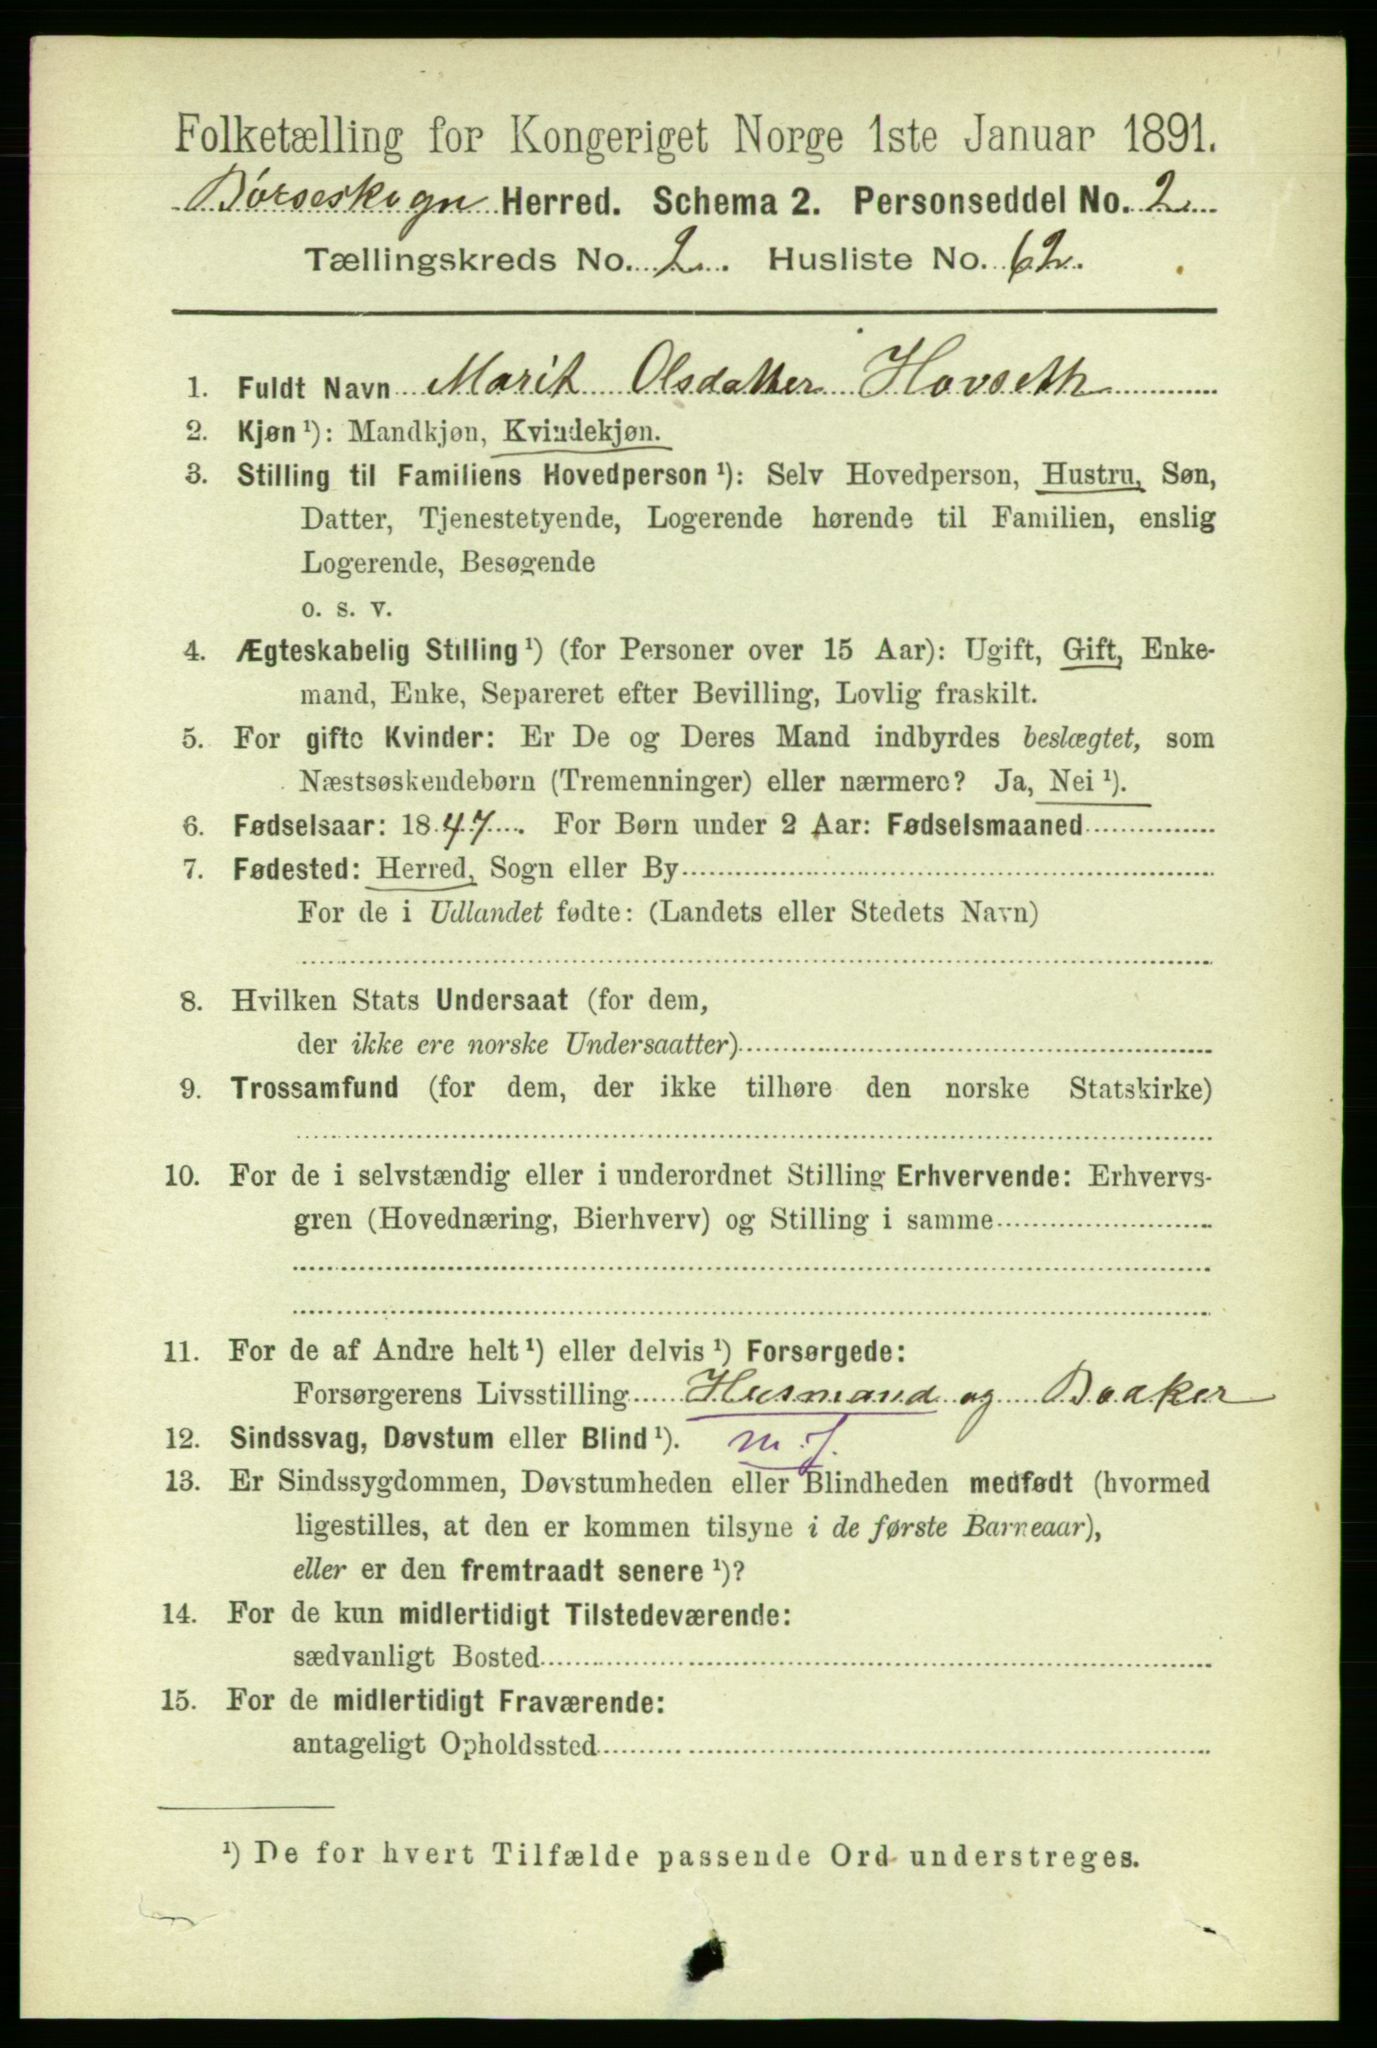 Folketælling for Kongeriget Norge 1ste Januar 1891.
Børseskogn Herred. Schema 2. Personseddel No. 2
Tællingskreds No. 2. Husliste No. 62.
1. Fuldt Navn Marit Olsdatter Hovseth
2. Kjøn ¹): Mandkjøn, Kvindekjøn.
3. Stilling til Familiens Hovedperson ¹): Selv Hovedperson, Hustru, Søn,
Datter, Tjenestetyende, Logerende hørende til Familien, enslig
Logerende, Besøgende
o. s. v.
4. Ægteskabelig Stilling ¹) (for Personer over 15 Aar): Ugift, Gift, Enke-
mand, Enke, Separeret efter Bevilling, Lovlig fraskilt.
5. For gifte Kvinder: Er De og Deres Mand indbyrdes beslægtet, som
Næstsøskendebørn (Tremenninger) eller nærmere? Ja, Nei ¹).
6. Fødselsaar: 1847. For Børn under 2 Aar: Fødselsmaaned
7. Fødested: Herred, Sogn eller By
For de i Udlandet fødte: (Landets eller Stedets Navn)
8. Hvilken Stats Undersaat (for dem,
der ikke ere norske Undersaatter)
9. Trossamfund (for dem, der ikke tilhøre den norske Statskirke)
10. For de i selvstændig eller i underordnet Stilling Erhvervende: Erhvervs-
gren (Hovednæring, Bierhverv) og Stilling i samme
11. For de af Andre helt ¹) eller delvis ¹) Forsørgede:
Forsørgerens Livsstilling Husmand og Baaker
12. Sindssvag, Døvstum eller Blind ¹). m. J.
13. Er Sindssygdommen, Døvstumheden eller Blindheden medfødt (hvormed
ligestilles, at den er kommen tilsyne i de første Barneaar),
eller er den fremtraadt senere ¹)?
14. For de kun midlertidigt Tilstedeværende:
sædvanligt Bosted
15. For de midlertidigt Fraværende:
antageligt Opholdssted
¹) De for hvert Tilfælde passende Ord understreges.